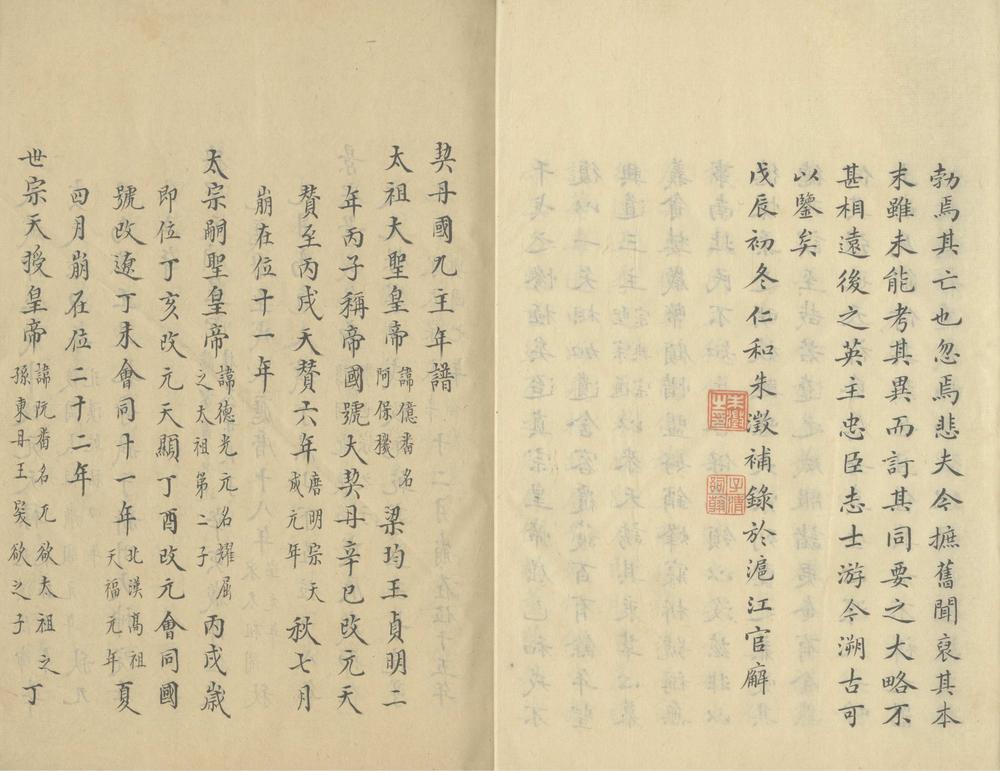 勃焉其亡也忽焉悲夫今摭舊聞裒其本
末雖未能考其異而訂其同要之大略不
甚相遠後之英主忠臣志士游今溯古可
以鑒矣
戊辰初冬仁和朱澂補錄於滬江官廨
契丹國九主年譜
太祖大聖皇帝諱億番名阿保機梁均王貞明二
年丙子稱帝國號大契丹辛巳改元天
贊至丙戌天贊六年唐明宗天成元年秋七月
崩在位十一年
太宗嗣聖皇帝諱德光元名耀屈之太祖第二子丙戌歲
即位丁亥改元天顯丁酉改元會同國
號改遼丁未會同十一年北漢高祖天福元年夏
四月崩在位二十二年
世宗天授皇帝諱阮番名兀欲太祖之孫東丹王突欲之子丁